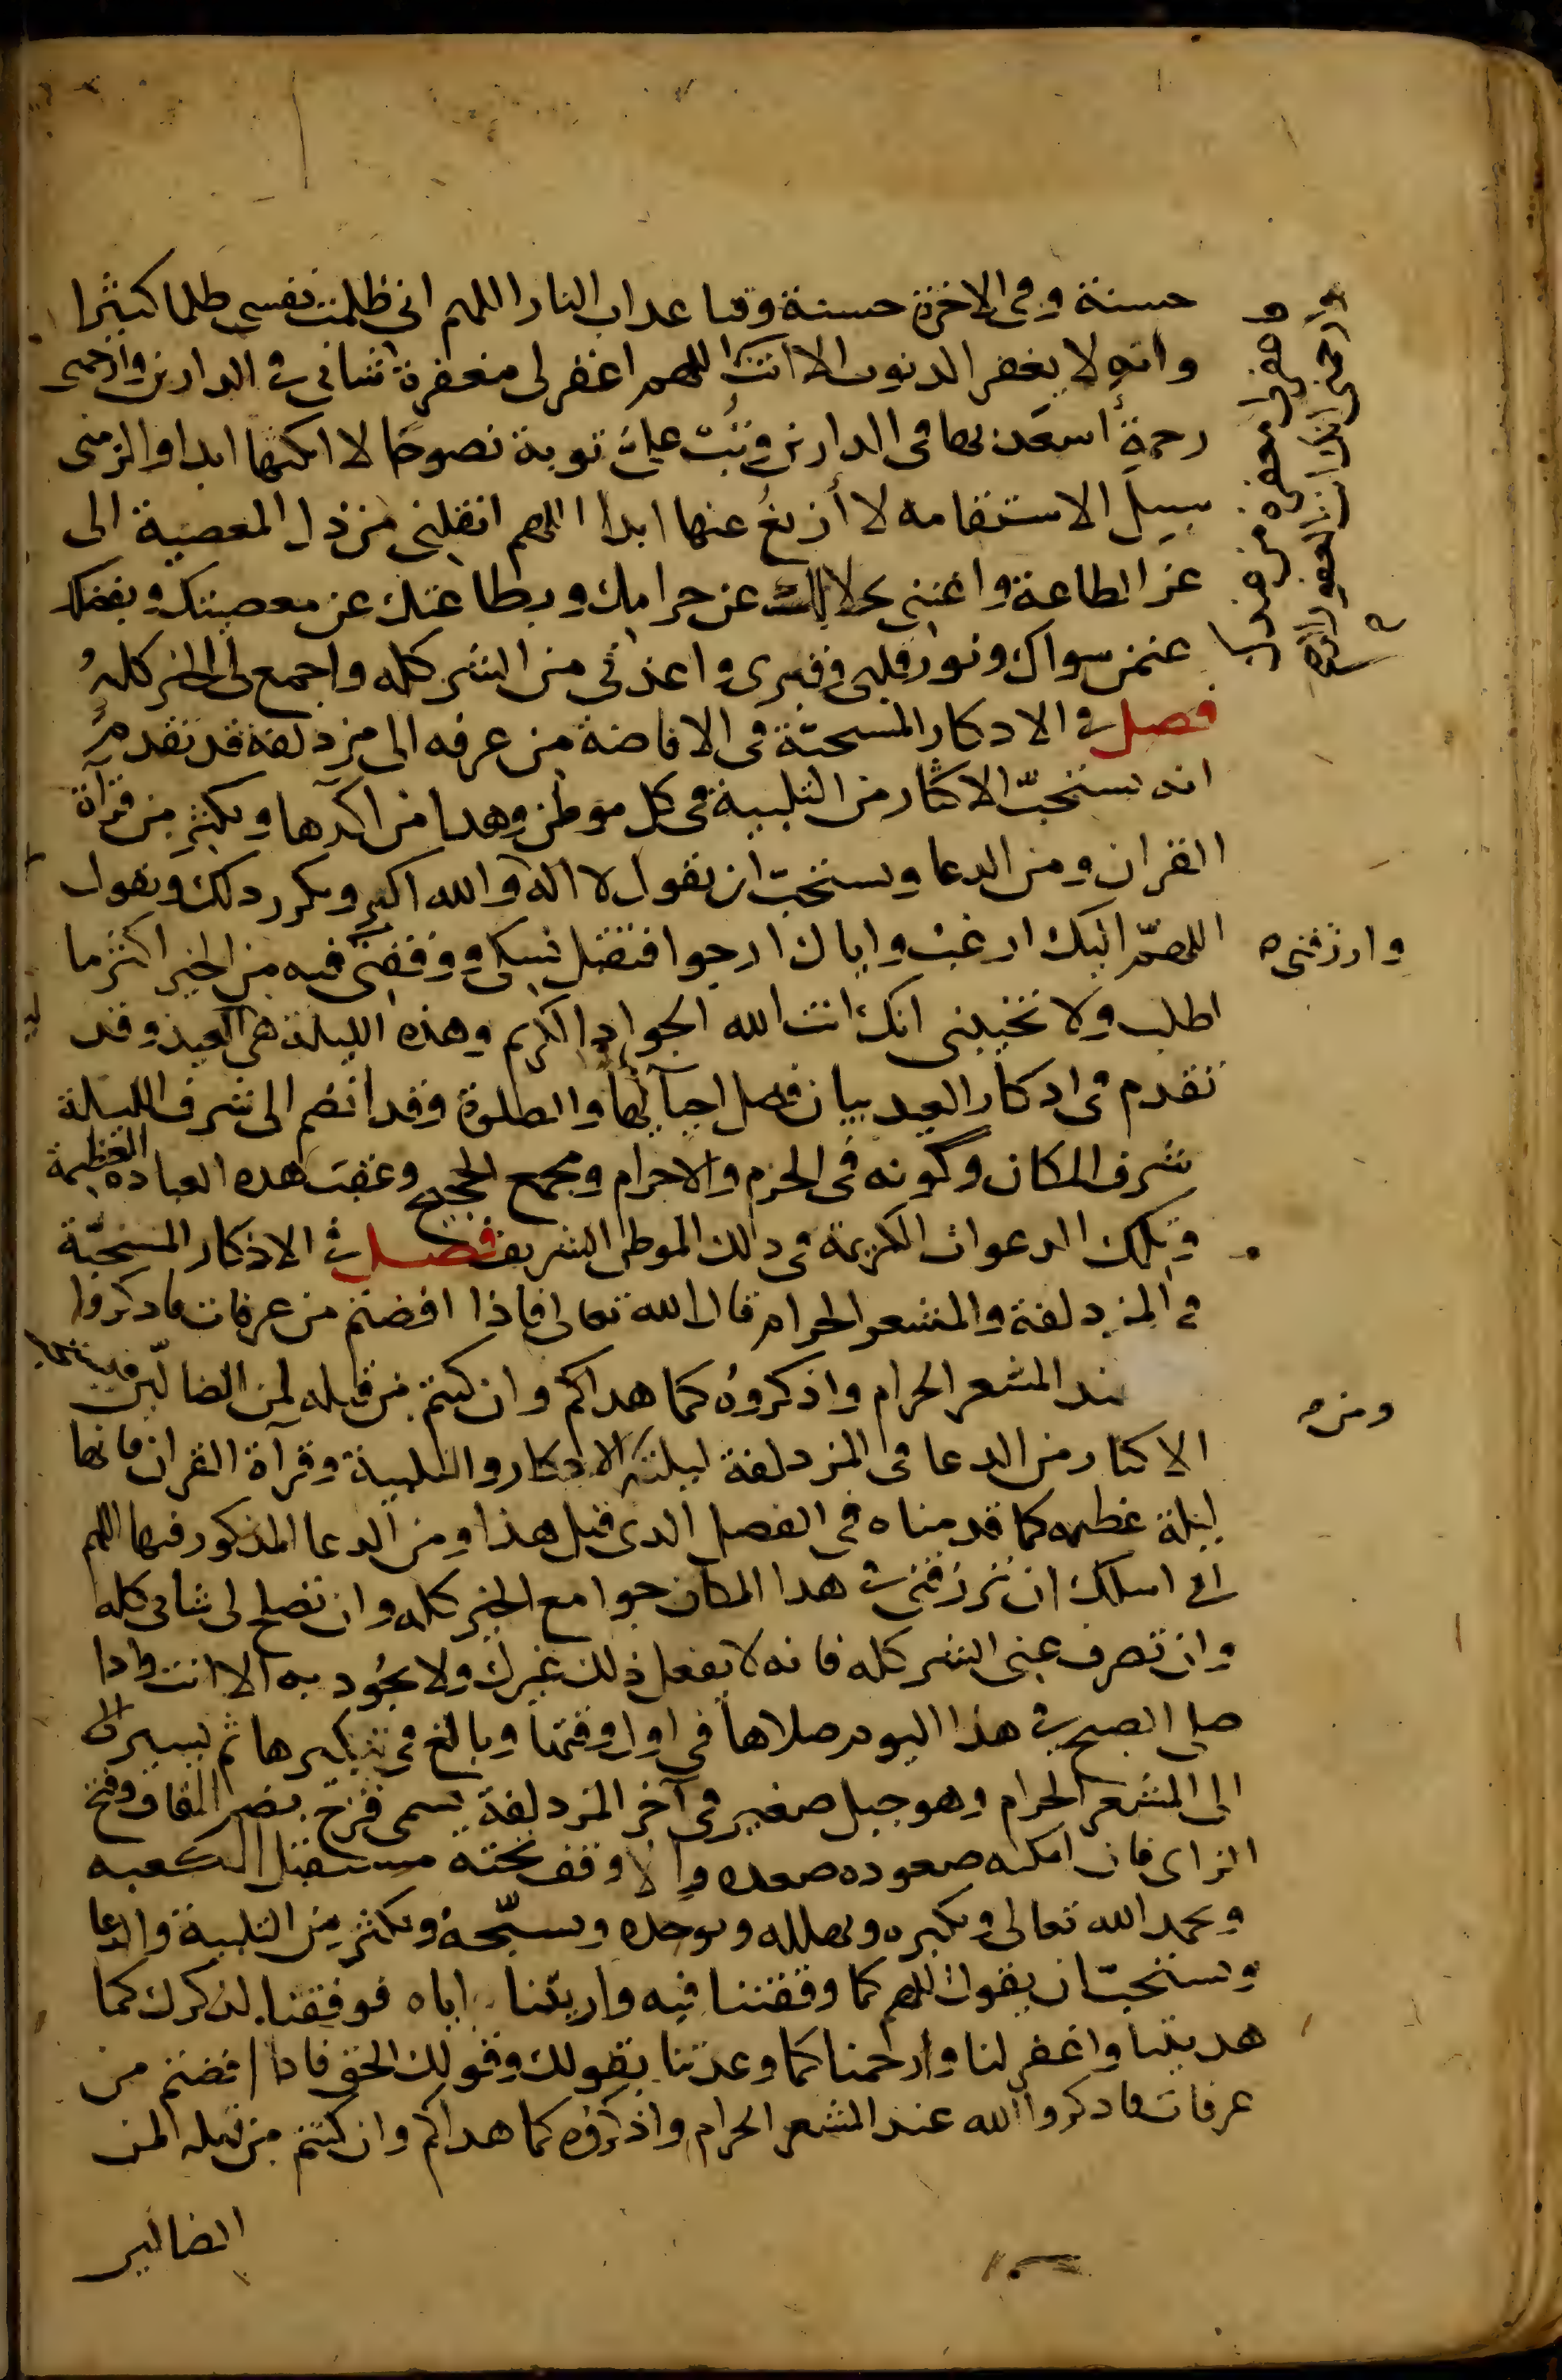 حسنة وفى الاخرة حسنة وقنا عداب النار اللهم انى ظلمت نفسى ظلما كثيرا
وانه لا يغفر الدنوب الا انت اللهم اغفر لى مغفرة تصلح بها شانى فى الدارين وارحمنى
رحمة أسعد بها فى الدارين وتب على توبة نصوحا لا انكثها ابدا والزمنى
سبيل الاستقامه لا أزيغ عنها ابدا اللهم انقلنى من ذل المعصية الى
عز الطاعة واغننى بحلالك عن حرامك وبطاعتك عن معصيتك وبفضلك
عمن سواك ونور قلبى وقبرى واعذنى من الشر كله واجمع لى الخير كله
فصل فى الادكار المستحبّة فى الافاضة من عرفه الى مزدلفة قد تقدم
انه يستحبّ الاكثار من التلبية فى كل موطن وهدا من اكدها ويكثر من قرآة
القران ومن الدعا ويستحبّ ان يقول لا اله الا الله والله اكبر ويكرر دلك ويقول
اللهمّ اليك ارغب واياك ارجوا فتقبل نسكى ووفقنى فيه من الخير اكثر ما
اطلب ولا تخيبنى انك انت الله الجواد الكريم وهذه الليلة هى العيد وقد
تقدم فى ادكار العيد بيان فصل احيآيها والصلوة وقد انضم الى شرف الليلة
شرف المكان وكونه فى الحرم والاحرام ومجمع الحجيج وعقب هده العباده العظيمة
وتلك الدعوات الكريمة فى دالك الموطن الشريف فصل فى الاذكار المستحبّة
فى المزدلفة والمشعر الحرام قال الله تعالى فاذا افضتم من عرفات فادكروا
ند المشعر الحرام واذكروه كما هداكم وان كنتم من قبله لمن الضالين فيستحب
الاكثار من الدعا فى المزدلفة ليلته الادكار والتلبية وقرآة القران فانها
ليلة عظيمه كما قدمناه فى الفصل الدى قبل هذا ومن الدعا المذكور فيها اللهم
انى اسلك ان ترزقنى فى هدا المكان جوامع الخير كله وان تصلح لى شانى كله
وان تصرف عنى الشر كله فانه لا يفعل ذلك غيرك ولا يجود به الا انت وادا
صلى الصبح فى هذا اليوم صلاها فى اول وقتها وبالغ فى تبكيرها ثم يسير
الى المشعر الحرام وهو جبل صغير فى آخر المزدلفة يسمى قزح بضم القاف وفتح
الزاى فان امكنه صعوده صعده والا وقف تحته مستقبل الكعبه
ويحمد الله تعالى ويكبره ويهلله ويوحده ويسبّحه ويكثر من التلبية والدعا
ويستحبّ ان يقول اللهم كما وقفتنا فيه واريتنا اياه فوفقنا لذكرك كما
هديتنا واغفر لنا وارحمنا كما وعدتنا بقولك وقولك الحق فادا افضتم من
عرفات فادكروا الله عند المشعر الحرام واذكروه كما هداكم وان كنتم من قبله لمن
الضالين
وارزقنى
ومن